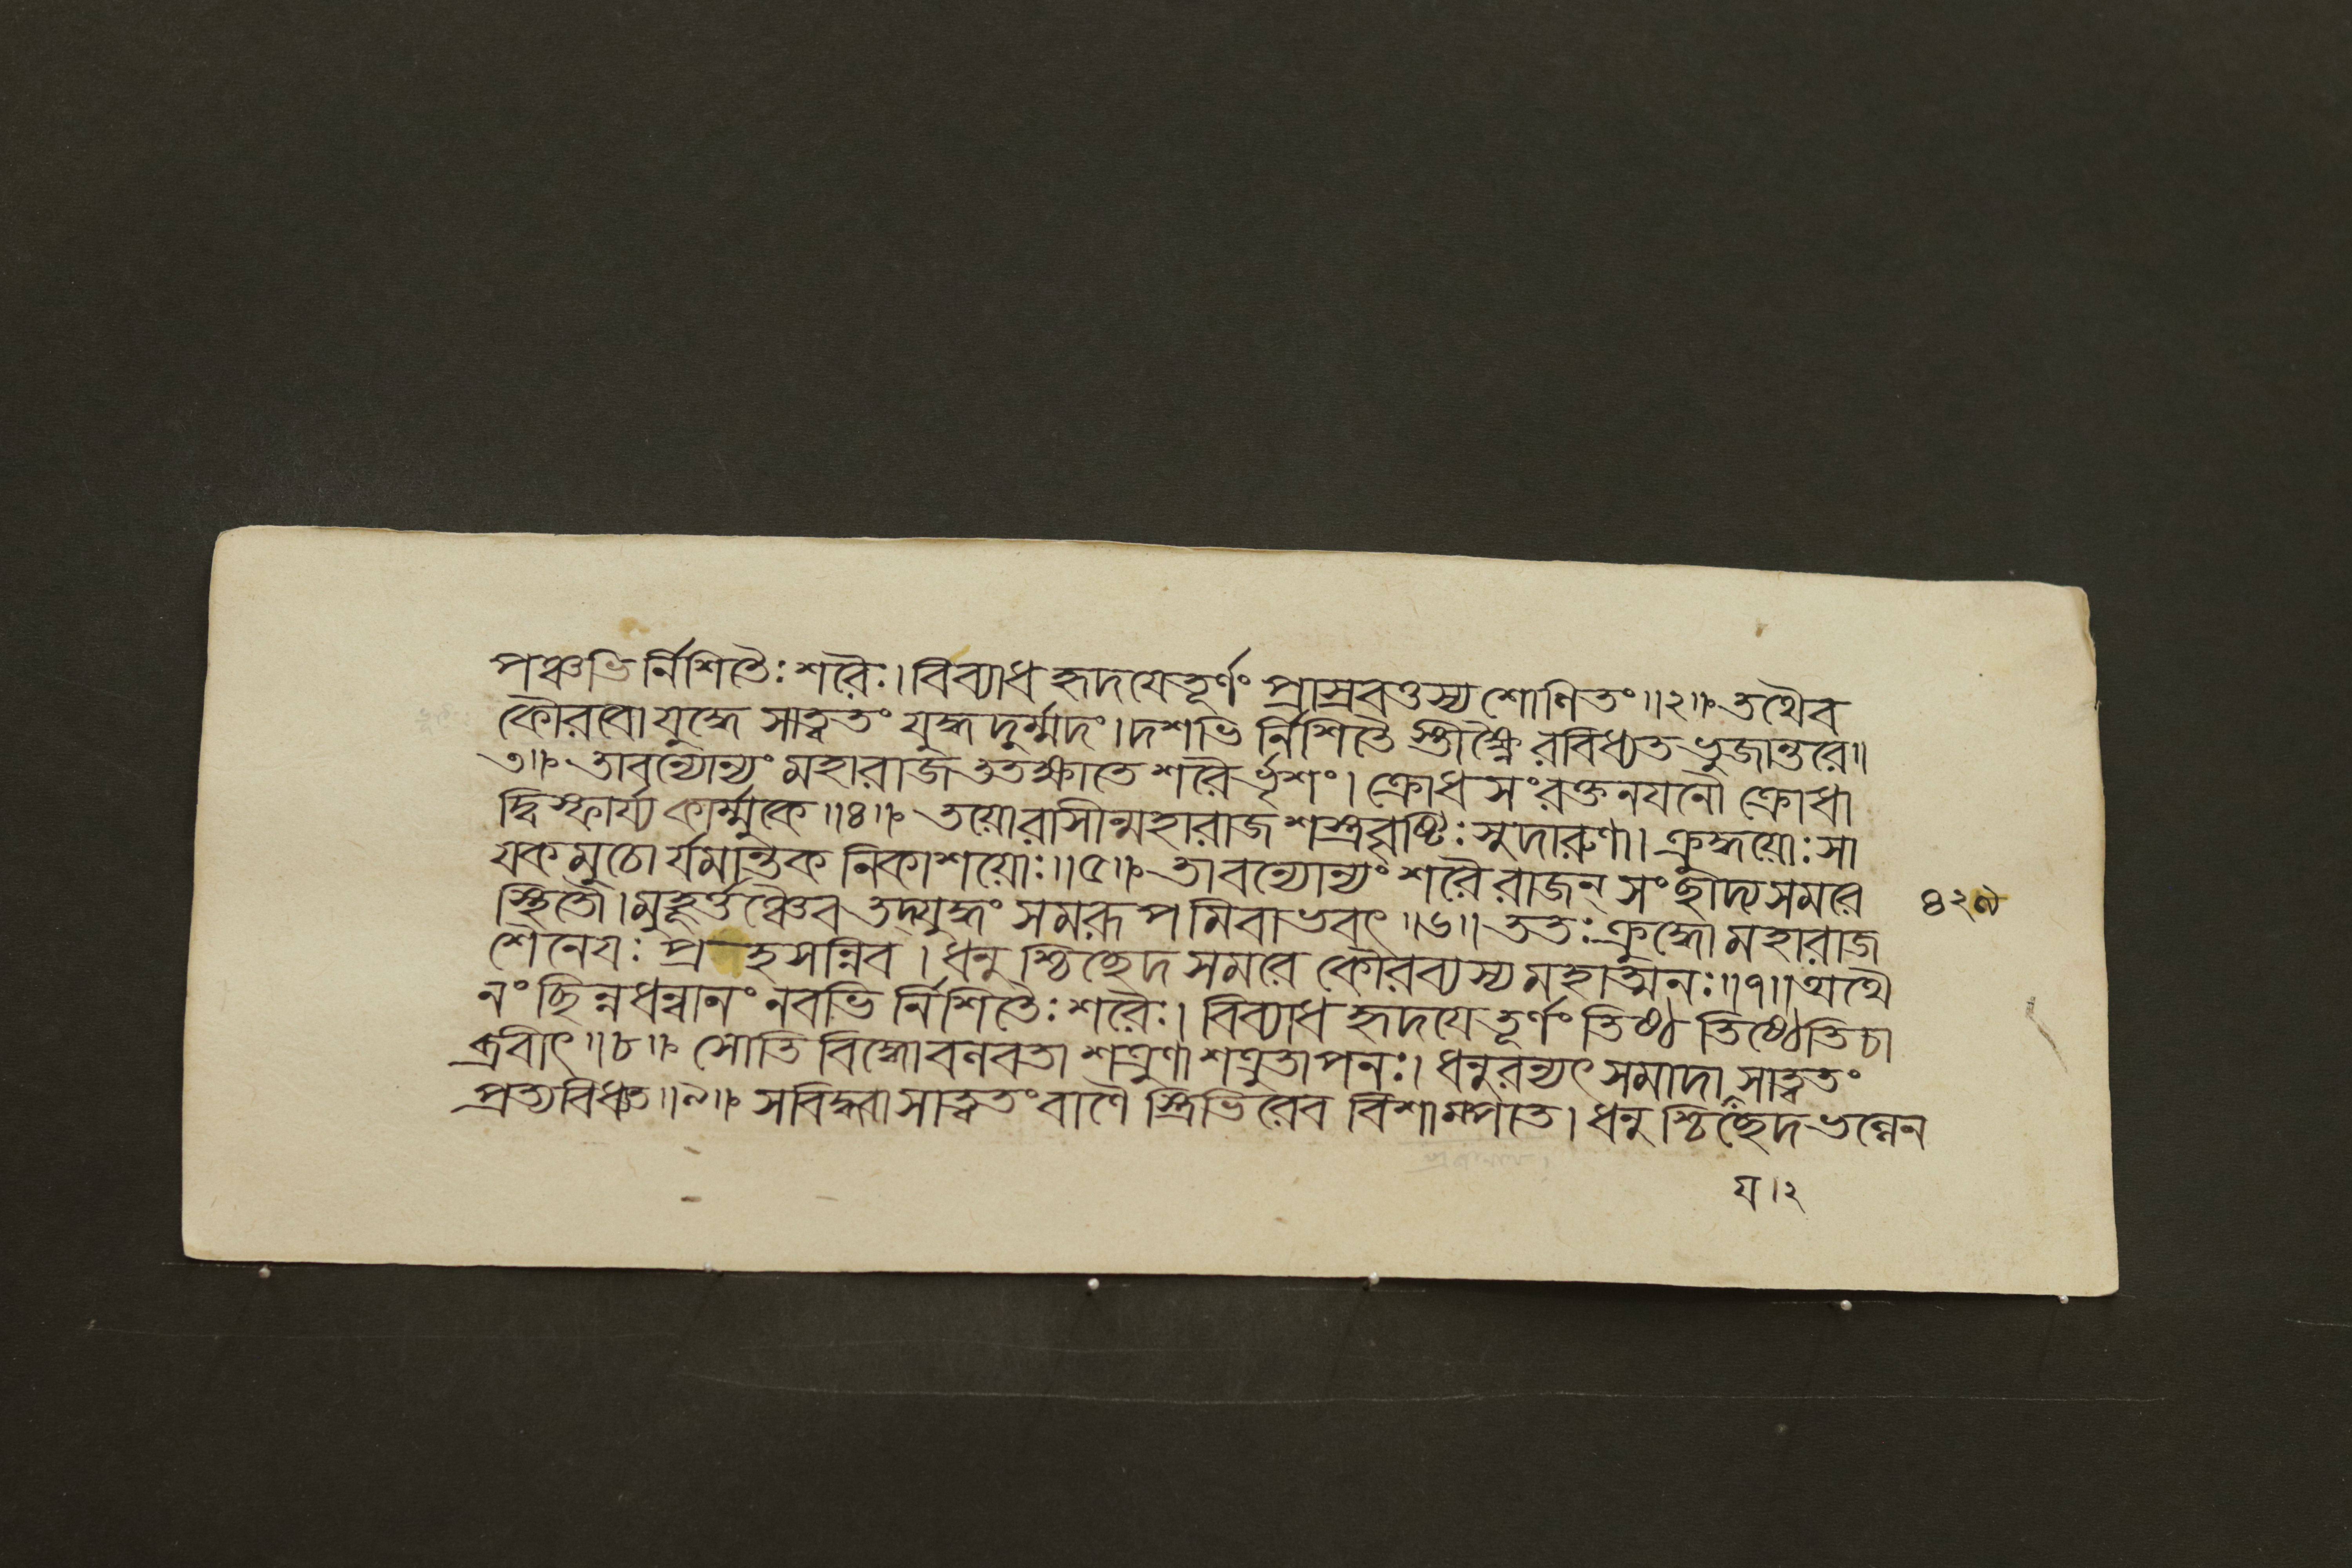 পঞ্চভির্নিশিতৈঃ শরৈঃ। বিব্যাধ হৃদযে তূর্ণং প্রাস্রবত্তস্য শোণিতং॥২॥ তথৈব
কৌরবো যুদ্ধে সাত্বতং যুদ্ধদুর্ম্মদং। দশভির্নিশিতৈ স্তীক্ষ্ণৈ রবিধ্যত ভুজান্তরে॥
৩॥ তাবন্যোন্যং মহারাজ ততক্ষাতে শরৈর্ভৃশং। ক্রোধসংরক্তনযনৌ ক্রোধা
দ্বিস্ফার্য্য কার্ম্মুকে॥৪॥ তয়োরাসীন্মহারাজ শস্ত্রবৃষ্টিঃ সুদারুণা। ক্রুদ্ধয়োঃ সা
যকমুচো র্যমান্তক নিকাশয়োঃ॥৫॥ তাবন্যোন্যং শরৈ রাজন্ সংছাদ্য সমরে
স্থিতৌ। মুহূর্ত্তঞ্চৈব তদ্যুদ্ধং সমরূপমিবাভবৎ॥৬॥ ততঃ ক্রুদ্ধো মহারাজ
শৈনেযঃ প্রহসন্নিব। ধনুশ্চিচ্ছেদ সমরে কৌরব্যস্য মহাত্মনঃ॥৭॥ অথৈ
নং ছিন্নধন্বানং নবভির্নিশিতৈঃ শরৈঃ। বিব্যাধ হৃদযে তূর্ণং তিষ্ঠ তিষ্ঠেতি চা
ব্রবীৎ॥৮॥ সোতিবিদ্ধো বলবতা শত্রুণা শত্রুতাপনঃ। ধনুরন্যৎ সমাদা সাত্বতং
প্রত্যবিধ্যত॥৯॥ স বিদ্ধ্বা সাত্বতং বাণৈ স্ত্রিভিরেব বিশাম্পতে। ধনুশ্চিচ্ছেদ ভল্লেন
য।২
৪২৯